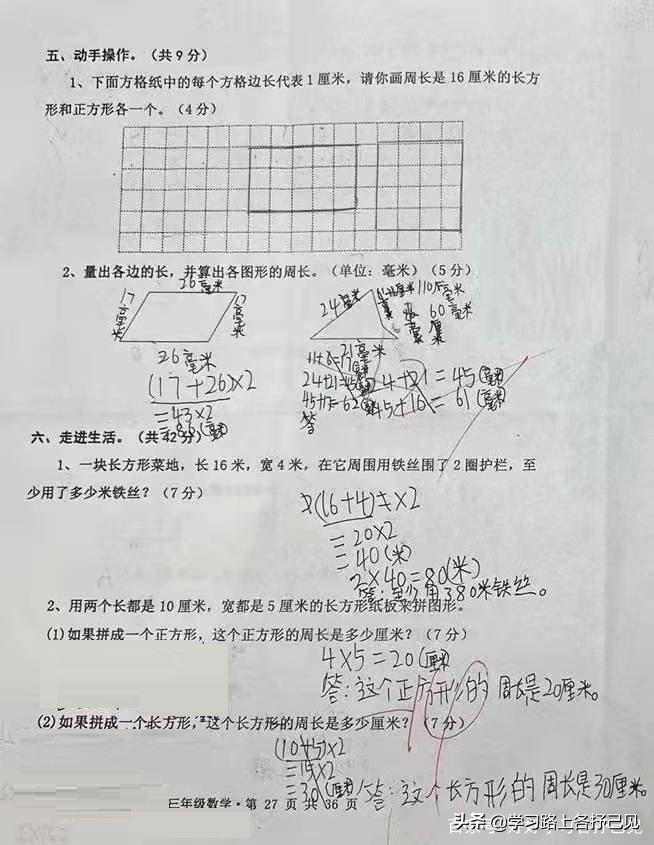 五、动手操作。（共9分）
1、下面方格纸中的每个方格边长代表1厘米，请你画周长是16厘米的长方
形和正方形各一个。（4分）
2、量出各边的长，并算出各图形的周长。（单位：毫米）（5分）
26毫米
17毫米
17毫米
24毫米
110毫米
60毫米
26毫米
21毫米
(17+26)×2
=43×2
=86(毫米)
11+6=17
24+21=45
45+17=62
答
24+21=45(毫米)
45+16=61(毫米)
六、走进生活。（共42分）
1、一块长方形菜地，长16米，宽4米，在它周围用铁丝围了2圈护栏，至
少用了多少米铁丝？（7分）
(16+4)×2
=20×2
=40(米)
2×40=80(米)
答：至少用了80米铁丝。
2、用两个长都是10厘米，宽都是5厘米的长方形纸板来拼图形。
(1)如果拼成一个正方形，这个正方形的周长是多少厘米？（7分）
4×5=20(厘米)
答：这个正方形的周长是20厘米。
(2)如果拼成一个长方形，这个长方形的周长是多少厘米？（7分）
(10+5)×2
=15×2
=30(厘米)
答：这个长方形的周长是30厘米。
三年级数学·第 27 页 共 36 页
头条 @学习路上各抒己见